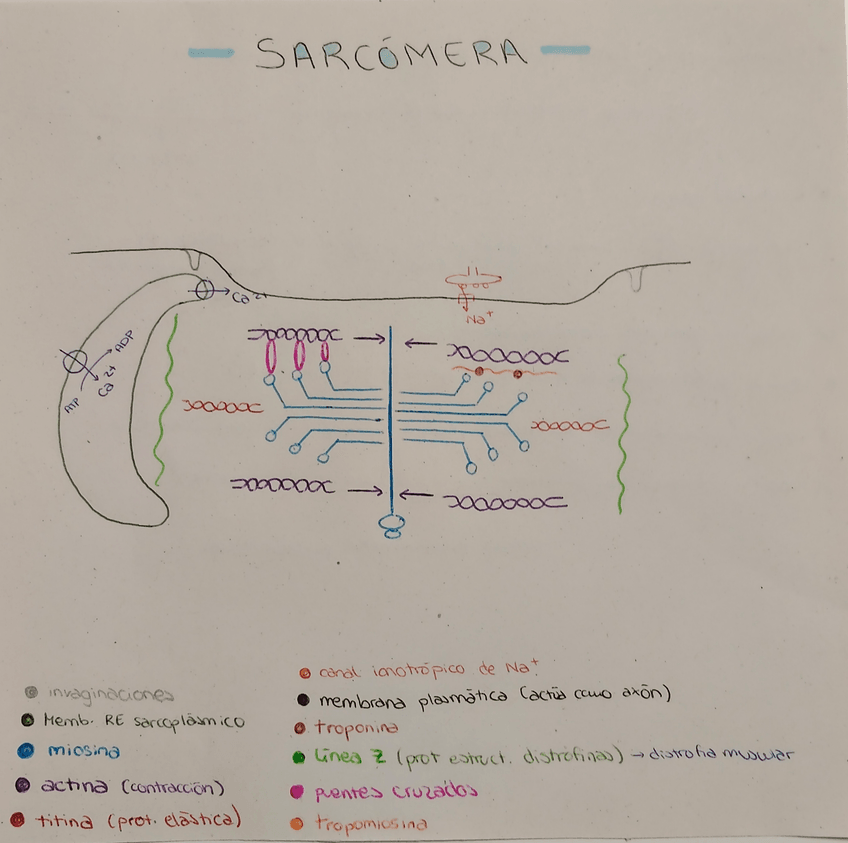 SARCÓMERA
Ca 2+
Na+
ADP
Ca 2+
invaginaciones
Memb. RE sarcoplásmico
miosina
actina (contracción)
titina (prot. elástica)
canal ionotrópico de Na+
membrana plasmática (actúa como axón)
troponina
Línea Z (prot estruct. distrofinas) → distrofia muscular
puentes cruzados
tropomiosina